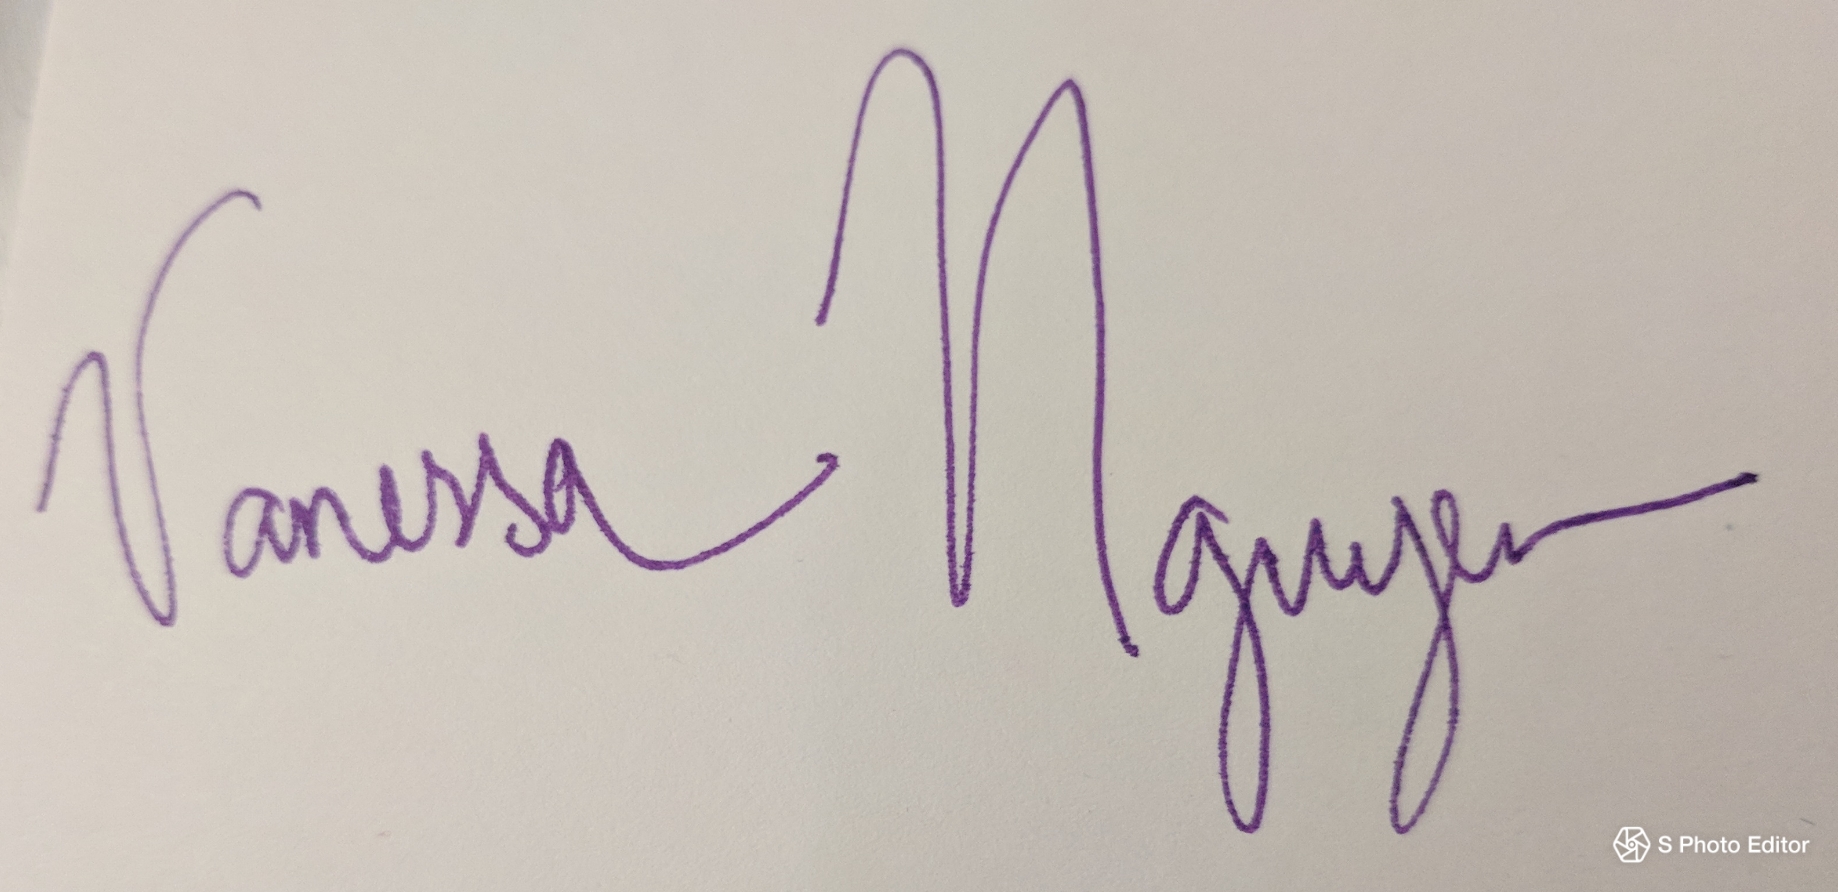 Vanessa Nguyen
S Photo Editor